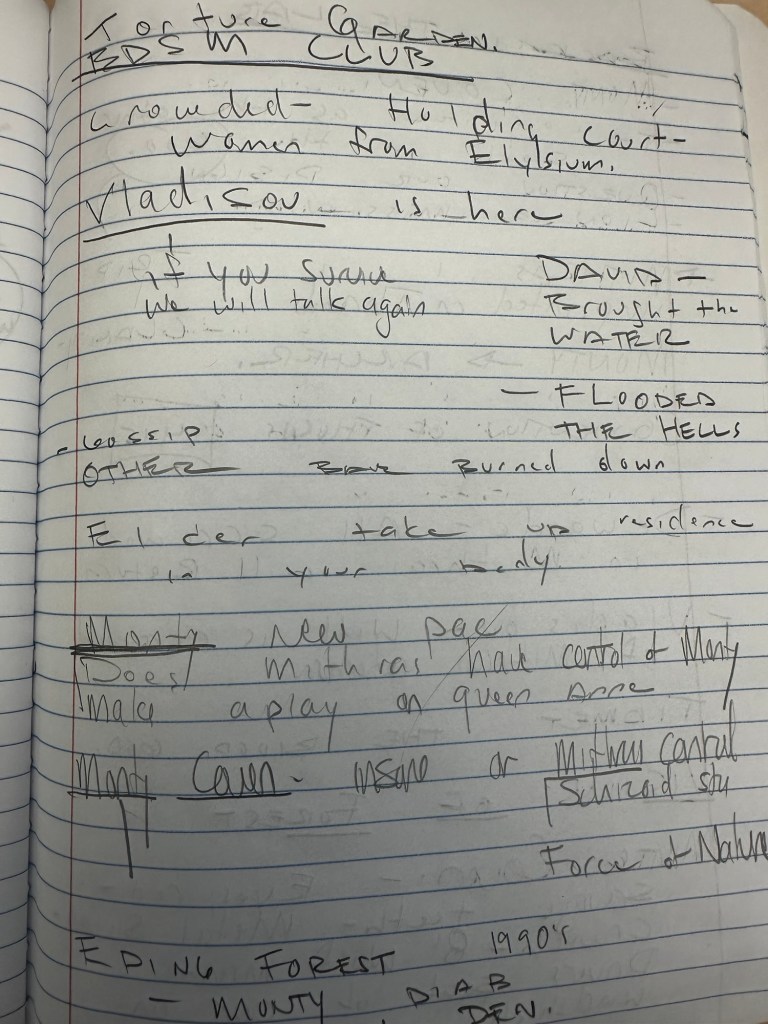 Torture GARDEN.
BDSM CLUB
Crowded - Holding court -
Women from Elylsium.
Vladisov is here
if you survive
we will talk again
DAVID -
Brought the
WATER
- FLOODED
THE HELLS
- Gossip
OTHER Burned down
Elder take up residence
in your body
Monty New
Does Mithras have control of Monty
Make a play on queen Anne
Monty Caven - insane or Mithras control
Schizoid
Force of Nature
EPING FOREST 1990's
- MONTY DIAB
DEN.